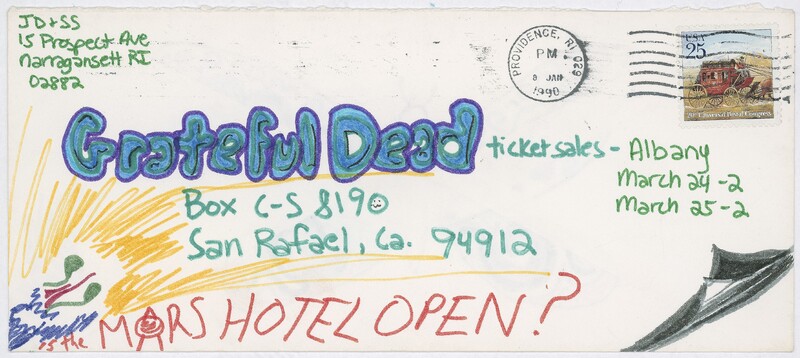 JD+SS
15 Prospect Ave
Narragansett RI
02882
PROVIDENCE, RI 029
PM
8 JAN
1990
USA
25
20th Universal Postal Congress
Grateful Dead ticket sales - Albany
March 24 -2
March 25 -2
Box C-S 8190
San Rafael, Ca. 94912
is the MARS HOTEL OPEN?